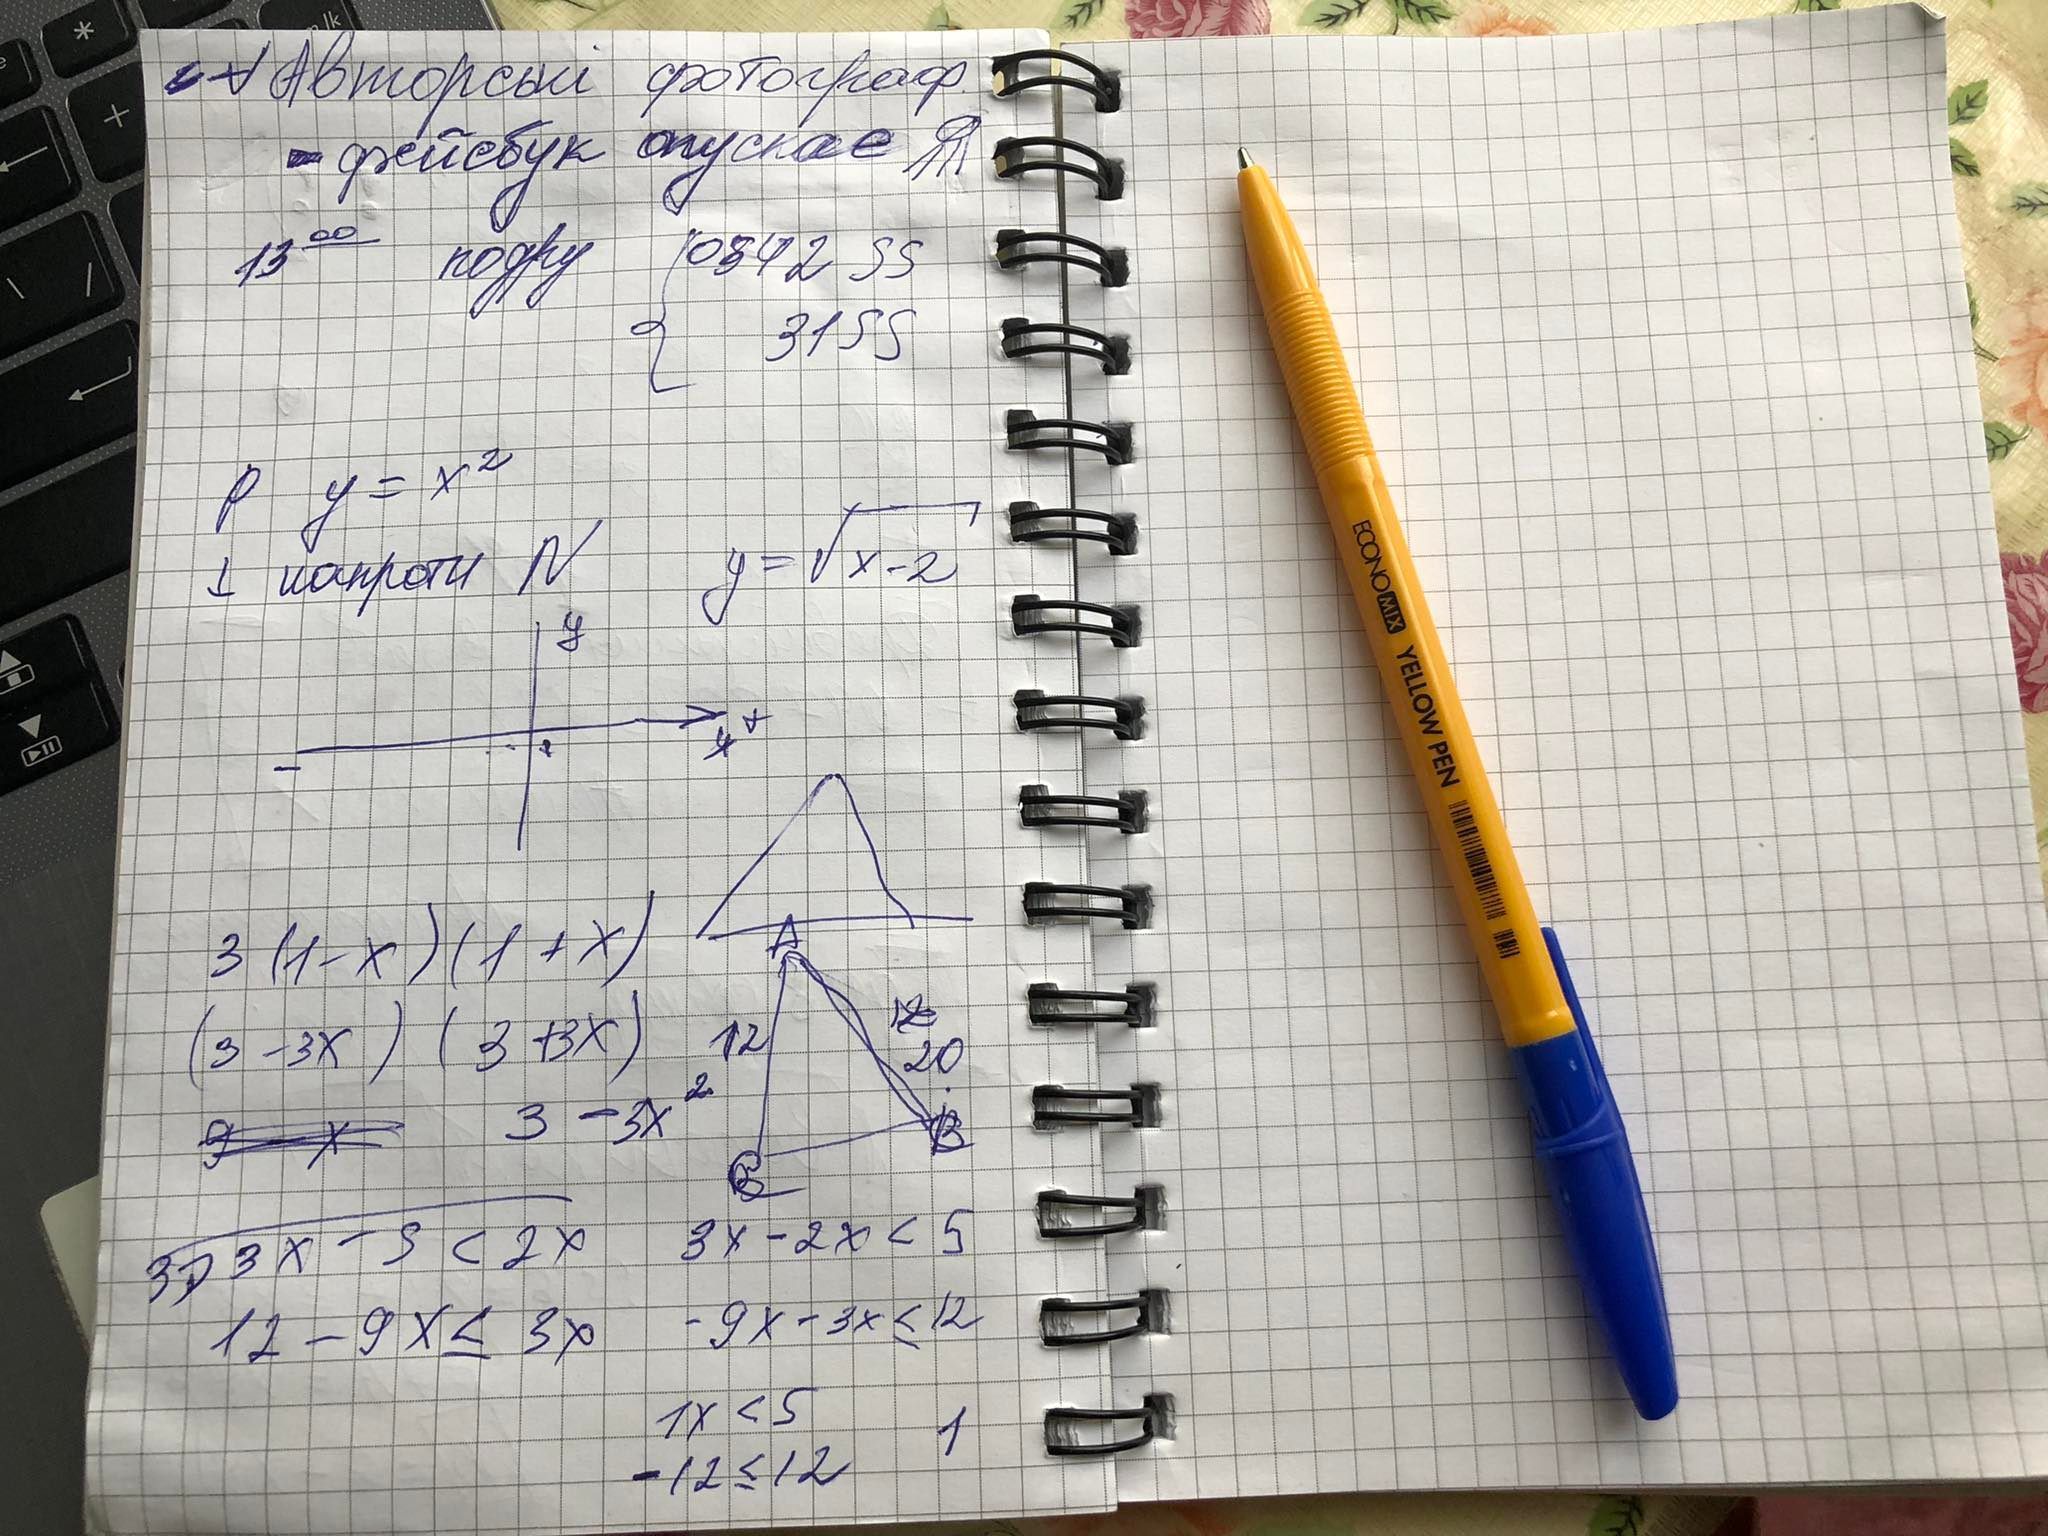 Авторські фотограф.
- фейсбук опускає
13 00 подру 0342 55
3155
р y = x²
⊥ напроти N y = √x-2
y
x
3 (1 - x) (1 + x)
(3 - 3x) (3 + 3x)
3 - 3x²
A
12
20
B
3) 3x - 5 < 2x 3x - 2x < 5
12 - 9x ≤ 3x -9x - 3x ≤ 12
1x < 5 1
-12 ≤ 12
ECONOMIX YELLOW PEN